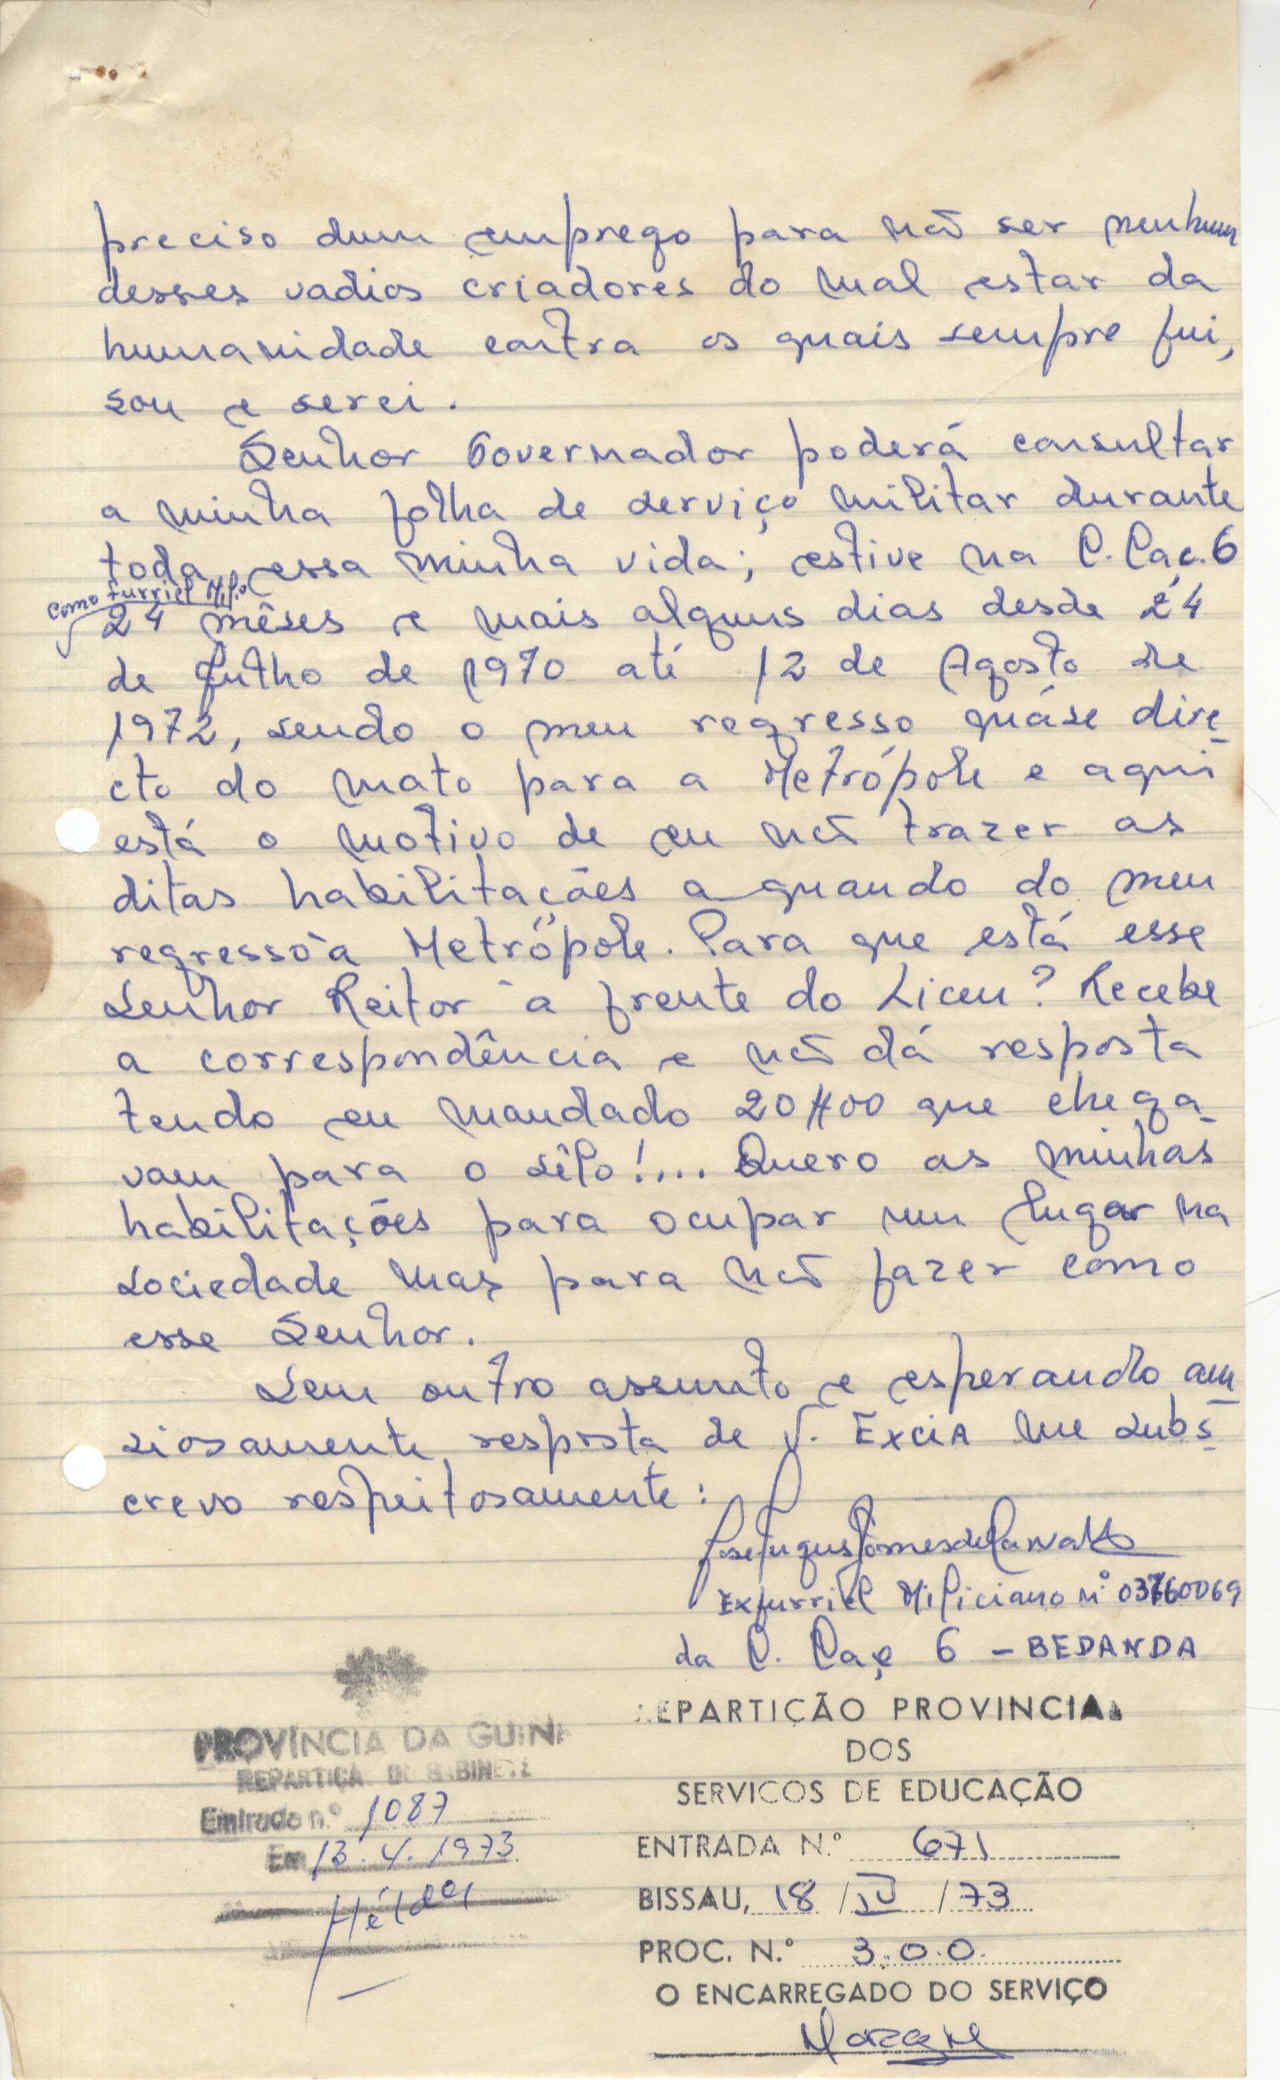 preciso dum emprego para não ser nenhum
desses vadios criadores do mal estar da
humanidade contra os quais sempre fui,
sou e serei.
Senhor Governador poderá consultar
a minha folha de serviço militar durante
toda essa minha vida; estive na C. Caç. 6
como furriel Mil.º
24 mêses e mais alguns dias desde 24
de Julho de 1970 até 12 de Agosto de
1972, sendo o meu regresso quáse dire-
cto do mato para a Metrópole e aqui
está o motivo de eu não trazer as
ditas habilitações a quando do meu
regresso à Metrópole. Para que está esse
Senhor Reitor à frente do Liceu? Recebe
a correspondência e não dá resposta
tendo eu mandado 20$00 que chega-
vam para o sêlo!... Quero as minhas
habilitações para ocupar um lugar na
sociedade mas para não fazer como
esse Senhor.
Sem outro assunto e esperando an-
siosamente resposta de V. Excia me subs-
crevo respeitosamente:
Gomes de Carvalho
Exfurriel Miliciano nº 03760069
da C. Caç 6 - BEDANDA
PROVÍNCIA DA GUINÉ
REPARTIÇÃO DE GABINETE
Entrada n.º 1087
Em 13.4.1973
Hélder
REPARTIÇÃO PROVINCIAL
DOS
SERVICOS DE EDUCAÇÃO
ENTRADA N.º 671
BISSAU, 18 / IV / 73
PROC. N.º 3.0.0.
O ENCARREGADO DO SERVIÇO